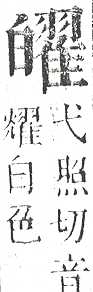 皬
弋照切音
耀白色